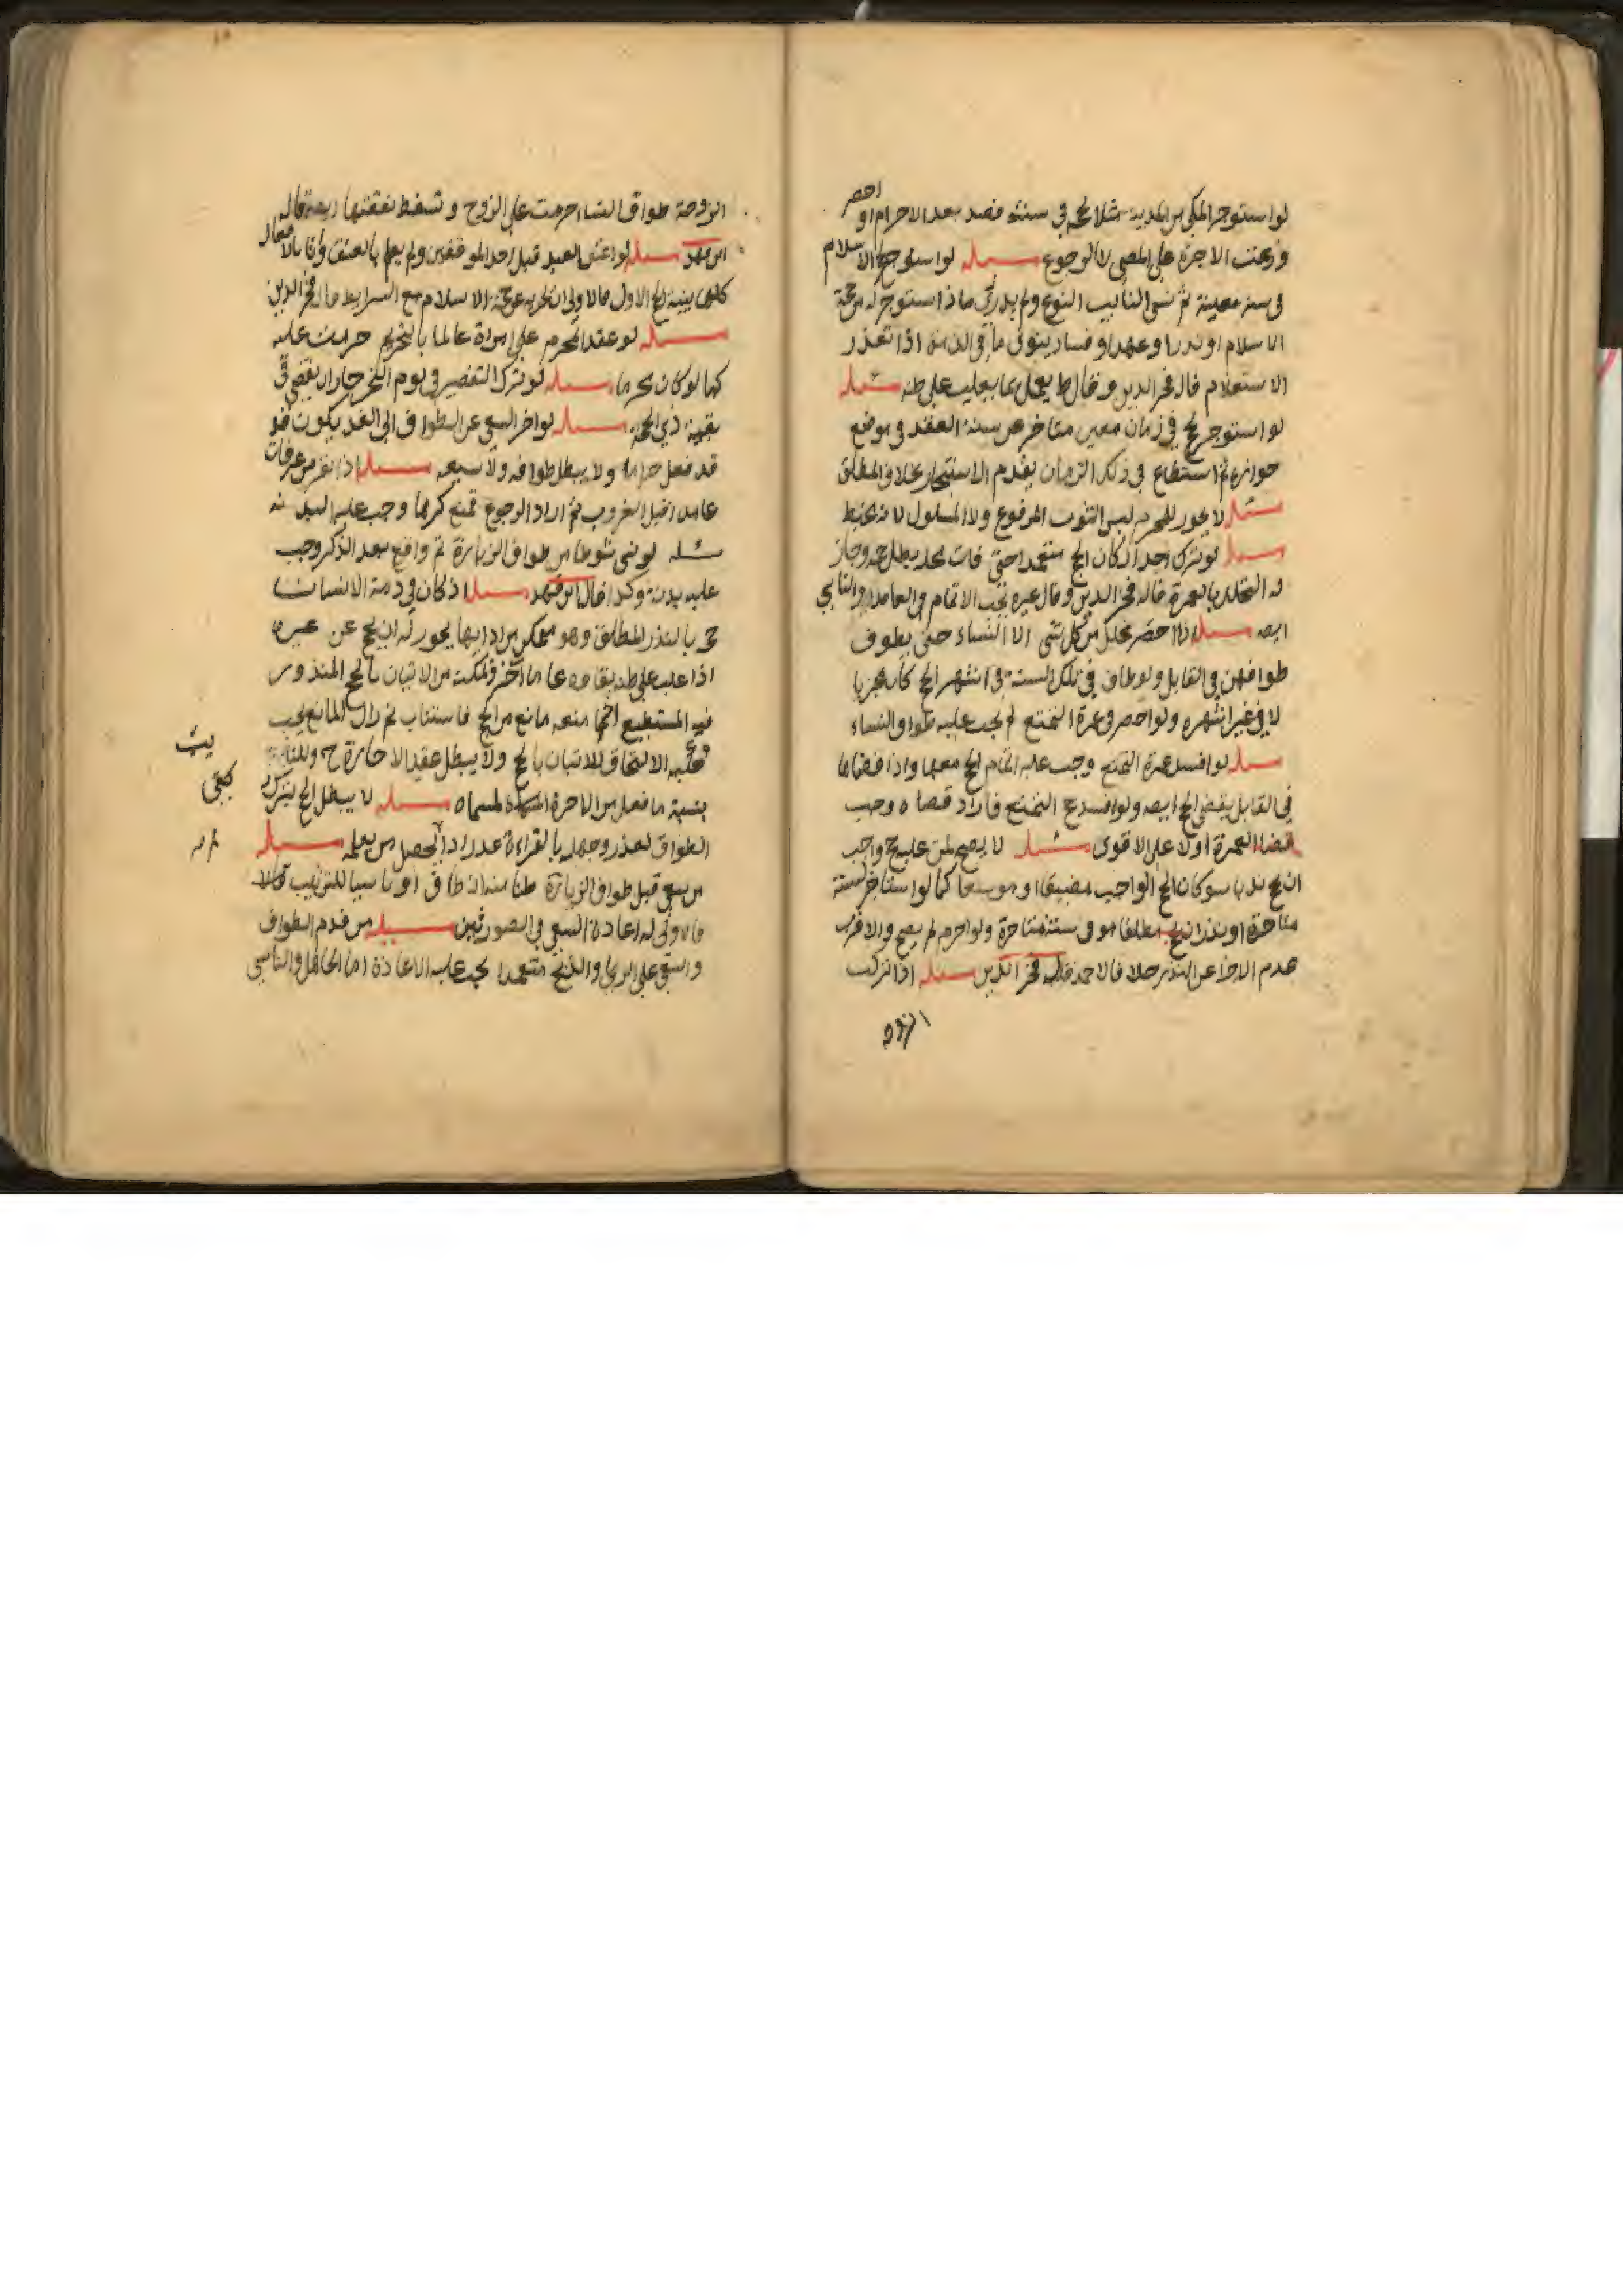 لو استوجر المكي من المدينة مثلا لحج في سنته فصد بعد الاحرام او احصر
وزعت الاجرة على المضي لا الرجوع مسله لو استوجر لحج الاسلام
في سنة معينة ثم نسي النايب النوع ولم يدر في ماذا استوجر له من حجة
الاسلام او نذر او عهد او فساد ينوي ما في الذمة اذا تعذر
الاستعلام قال فخر الدين وقال ط يعمل بما يغلب على ظنه مسله
لو استوجر لحج في زمان معين متاخر عن سنة العقد في موضع
جوازه ثم استطاع في ذلك الزمان يقدم الاستيجار بخلاف المطلق
مسله لا يجوز للمحرم لبس الثوب المرفوع ولا المسلول لانه مخيط
مسله لو ترك احد اركان الحج متعمدا حتى فات محله بطل حجه وجاز
له التحلل بالعمرة قاله فخر الدين وقال غيره يجب الاتمام في العامد والناسي
ايضه مسله اذا احصر تحلل من كل شي الا النساء حتى يطوف
طوافهن في القابل ولو طاف في تلك السنة في اشهر الحج كان مجزيا
لا في غير اشهره ولو احصر في عمرة التمتع لم يجب عليه طواف النساء
مسله لو افسد عمرة التمتع وجب عليه اتمام الحج معها واذا قضاها
في القابل يقضي الحج ايضه ولو افسد حج التمتع فاراد قضاه وجب
قضا العمرة اولا على الاقوى مسله لا يصح لمن عليه حج واجب
ان يحج ندبا سو كان الحج الواجب مضيقا او موسعا كما لو استاجر لسنة
متاخرة او نذر ان يحج مطلقا هو في سنة متاخرة ولو احرم لم يصح والاقرب
عدم الاجزا عن النذر حلا فالاحمد قاله فخر الدين مسله اذا تركت
الزوجة
الزوجة طواف النساء حرمت على الزوج وتسقط نفقتها ايضه قاله
ابن فهد مسله لو اعتق العبد قبل احد الموقفين ولم يعلم بالعتق واتا بالافعال
كلها بنية الحج الاول فالاولى ان تجزيه عن حجة الاسلام مع الشرايط قاله فخر الدين
مسله لو عقد المحرم على امراة عالما بالتحريم حرمت عليه
كما لو كان محرما مسله لو ترك التقصير في يوم النحر جاز ان يقضي في
بقية ذي الحجة مسله لو اخر السعي عن الطواف الى الغد يكون
قد فعل حراما ولا يبطل طوافه ولا سعيه مسله اذا نفر من عرفات
عامدا قبل الغروب ثم اراد الرجوع فمنع كرها وجب عليه البدنه
مسله لو نسي شوطا من طواف الزيارة ثم واقع بعد الذكر وجب
عليه بدنة وكذا قال ابن فهد مسله اذ كان في ذمة الانسان
حج بالنذر المطلق وهو متمكن من ادايها يجوز له ان يحج عن غيره
اذا غلب على ظنه بقاوه عاما اخر وتمكنه من الاتيان بالحج المنذور
فيه المستطيع اذا منعه مانع من الحج فاستناب ثم زال المانع يجب
عليه الالتحاق للاتيان بالحج ولا يبطل عقد الاجارة ح وللنايب
بنسبة ما فعل من الاجرة المسماه مسله لا يبطل الحج بترك
الطواف لعذر وجهله بالقراءة عذر اذا لم يحصل من يعلمه مسله
من سعى قبل طواف الزيارة ظنا منه انه طاف او ناسيا للترتيب
فالاولى له اعادة السعي في الصورتين مسله من قدم الطواف
والسعي على الرمي والذبح متعمدا يجب عليه الاعادة اما الجاهل والناسي